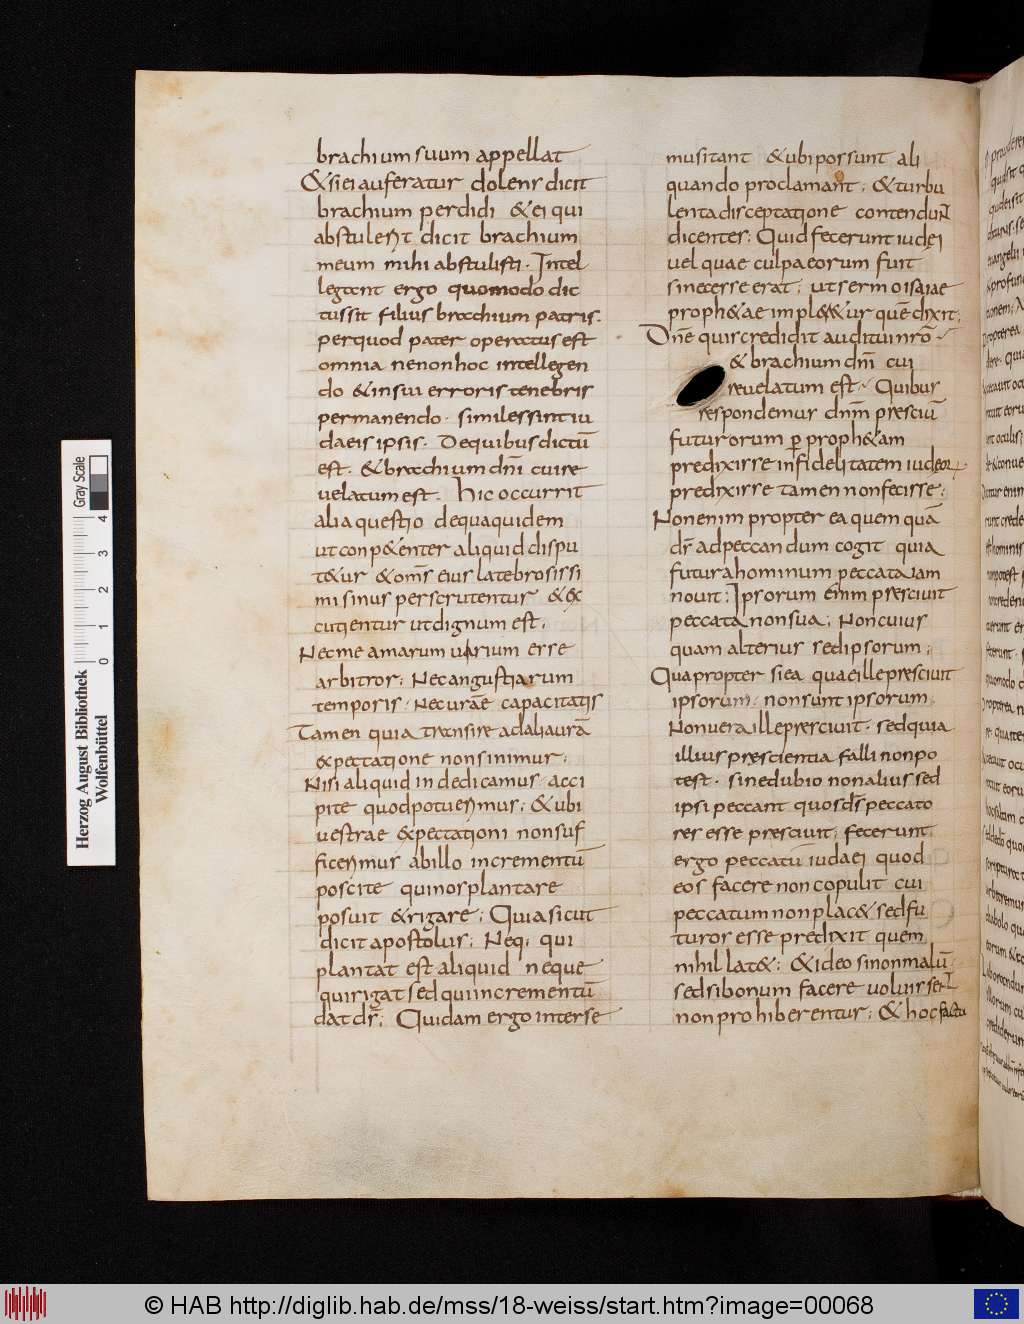 brachium suum appellat
& si ei auferatur dolens dicit
brachium perdidi & ei qui
abstulerit dicit brachium
meum mihi abstulisti. Intel
legant ergo quomodo dic
tus sit filius brachium patris.
per quod pater operatus est
omnia ne non hoc intellegen
do & in sui erroris tenebris
permanendo. similes sint iu
daeis ipsis. De quibus dictū
est. & brachium dn̄i cui re
velatum est. hic occurrit
alia questio de qua quidem
ut conp&enter aliquid dispu
t&ur & om̄s eius latebrosissi
mi sinus perscrutentur & ex
cutientur ut dignum est;
Nec me amarum uarium esse
arbitror; Nec angustiarum
temporis. Nec urāe capacitatis
Tamen quia transire ad alia urā
expectatione non sinimur;
Nisi aliquid inde dicamus. acci
pite quod potuerimus; & ubi
vestrae expectationi non suf
ficerimus ab illo incrementū
poscite qui nos plantare
posuit & rigare; Quia sicut
dicit apostolus; Neq; qui
plantat est aliquid neque
qui rigat sed qui incrementū
dat ds̄; Quidam ergo inter se
musitant & ubi possunt ali
quando proclamant; & turbu
lenta disceptatione contendunt
dicentes; Quid fecerunt iudei
vel quae culpa eorum fuit
si necesse erat; ut sermo isaiae
proph&ae impler&ur quē dixit;
Dn̄e quis credidit auditui nr̄o
& brachium dn̄i cui
revelatum est. Quibus
respondemus dn̄m presciū
futurorum ꝑ proph&am
predixisse infidelitatem iudeoꝝ
predixisse tamen non fecisse;
Non enim propter ea quemquā
ds̄ ad peccandum cogit quia
futura hominum peccata iam
novit; Ipsorum enim prescivit
peccata non sua; Non cuius
quam alterius sed ipsorum;
Qua propter si ea quae ille prescivit
ipsorum. non sunt ipsorum.
Non vera ille prescivit. sed quia
illius prescientia falli non po
test. sine dubio non alius sed
ipsi peccant quos ds̄ peccato
res esse prescivit; fecerunt
ergo peccatū iudaei quod
eos facere non copulit cui
peccatum non plac& sed fu
turos esse predixit quem
nihil lat&; & ideo si non malū
sed si bonum facere voluissent
non prohiberentur; & hoc factu
Gray Scale
0 1 2 3 4
Herzog August Bibliothek
Wolfenbüttel
© HAB http://diglib.hab.de/mss/18-weiss/start.htm?image=00068